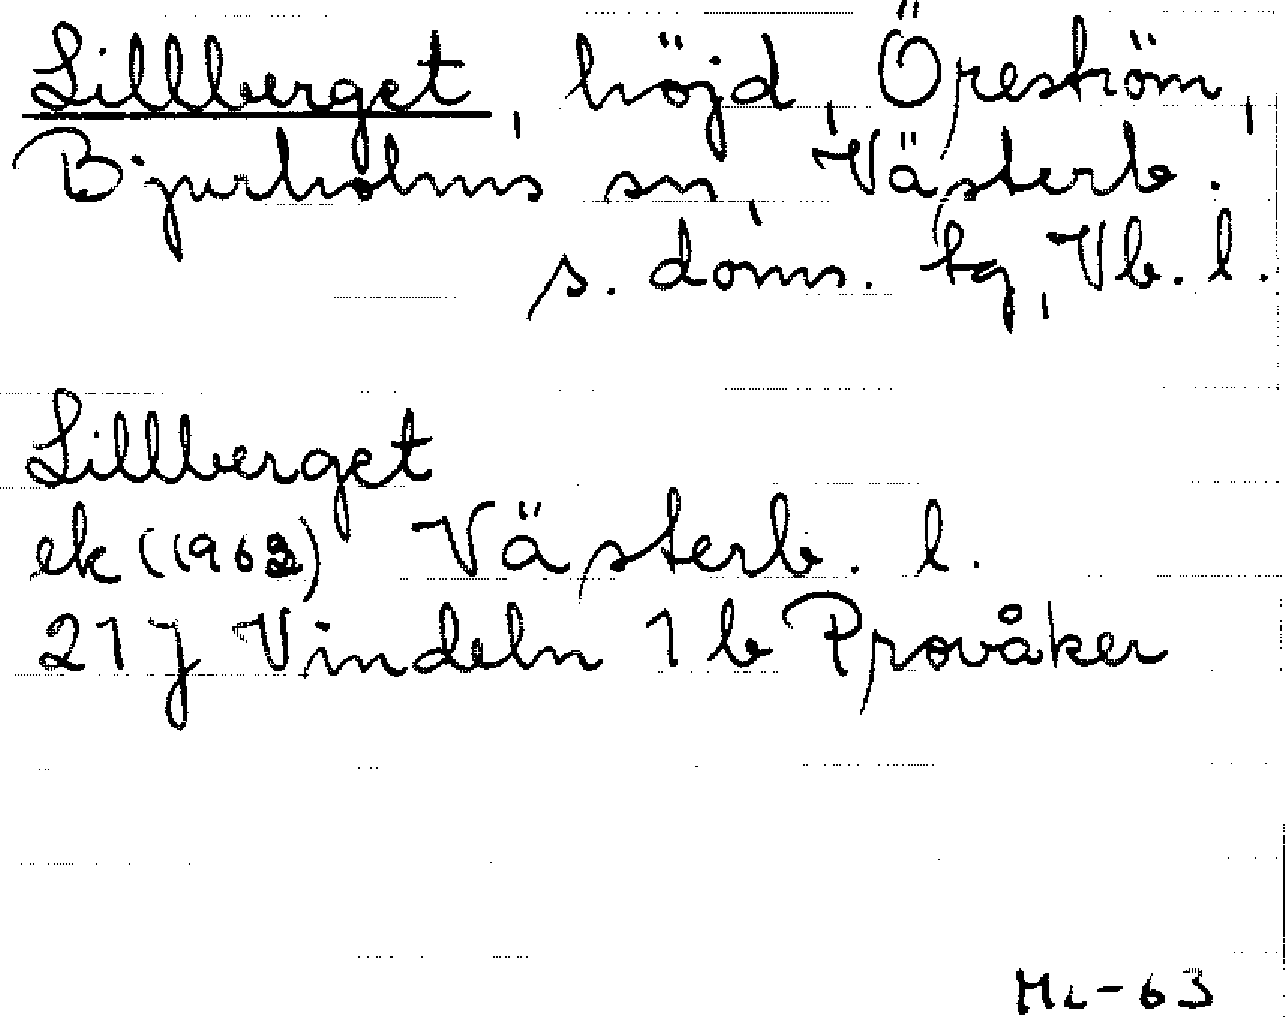 Lillberget, höjd, Öreström,
Bjurholms sn, Västerb.
s. doms. tg, Vb. l.
Lillberget
ek (1963) Västerb. l.
21 J Vindeln 1 b Provåker
ML-63